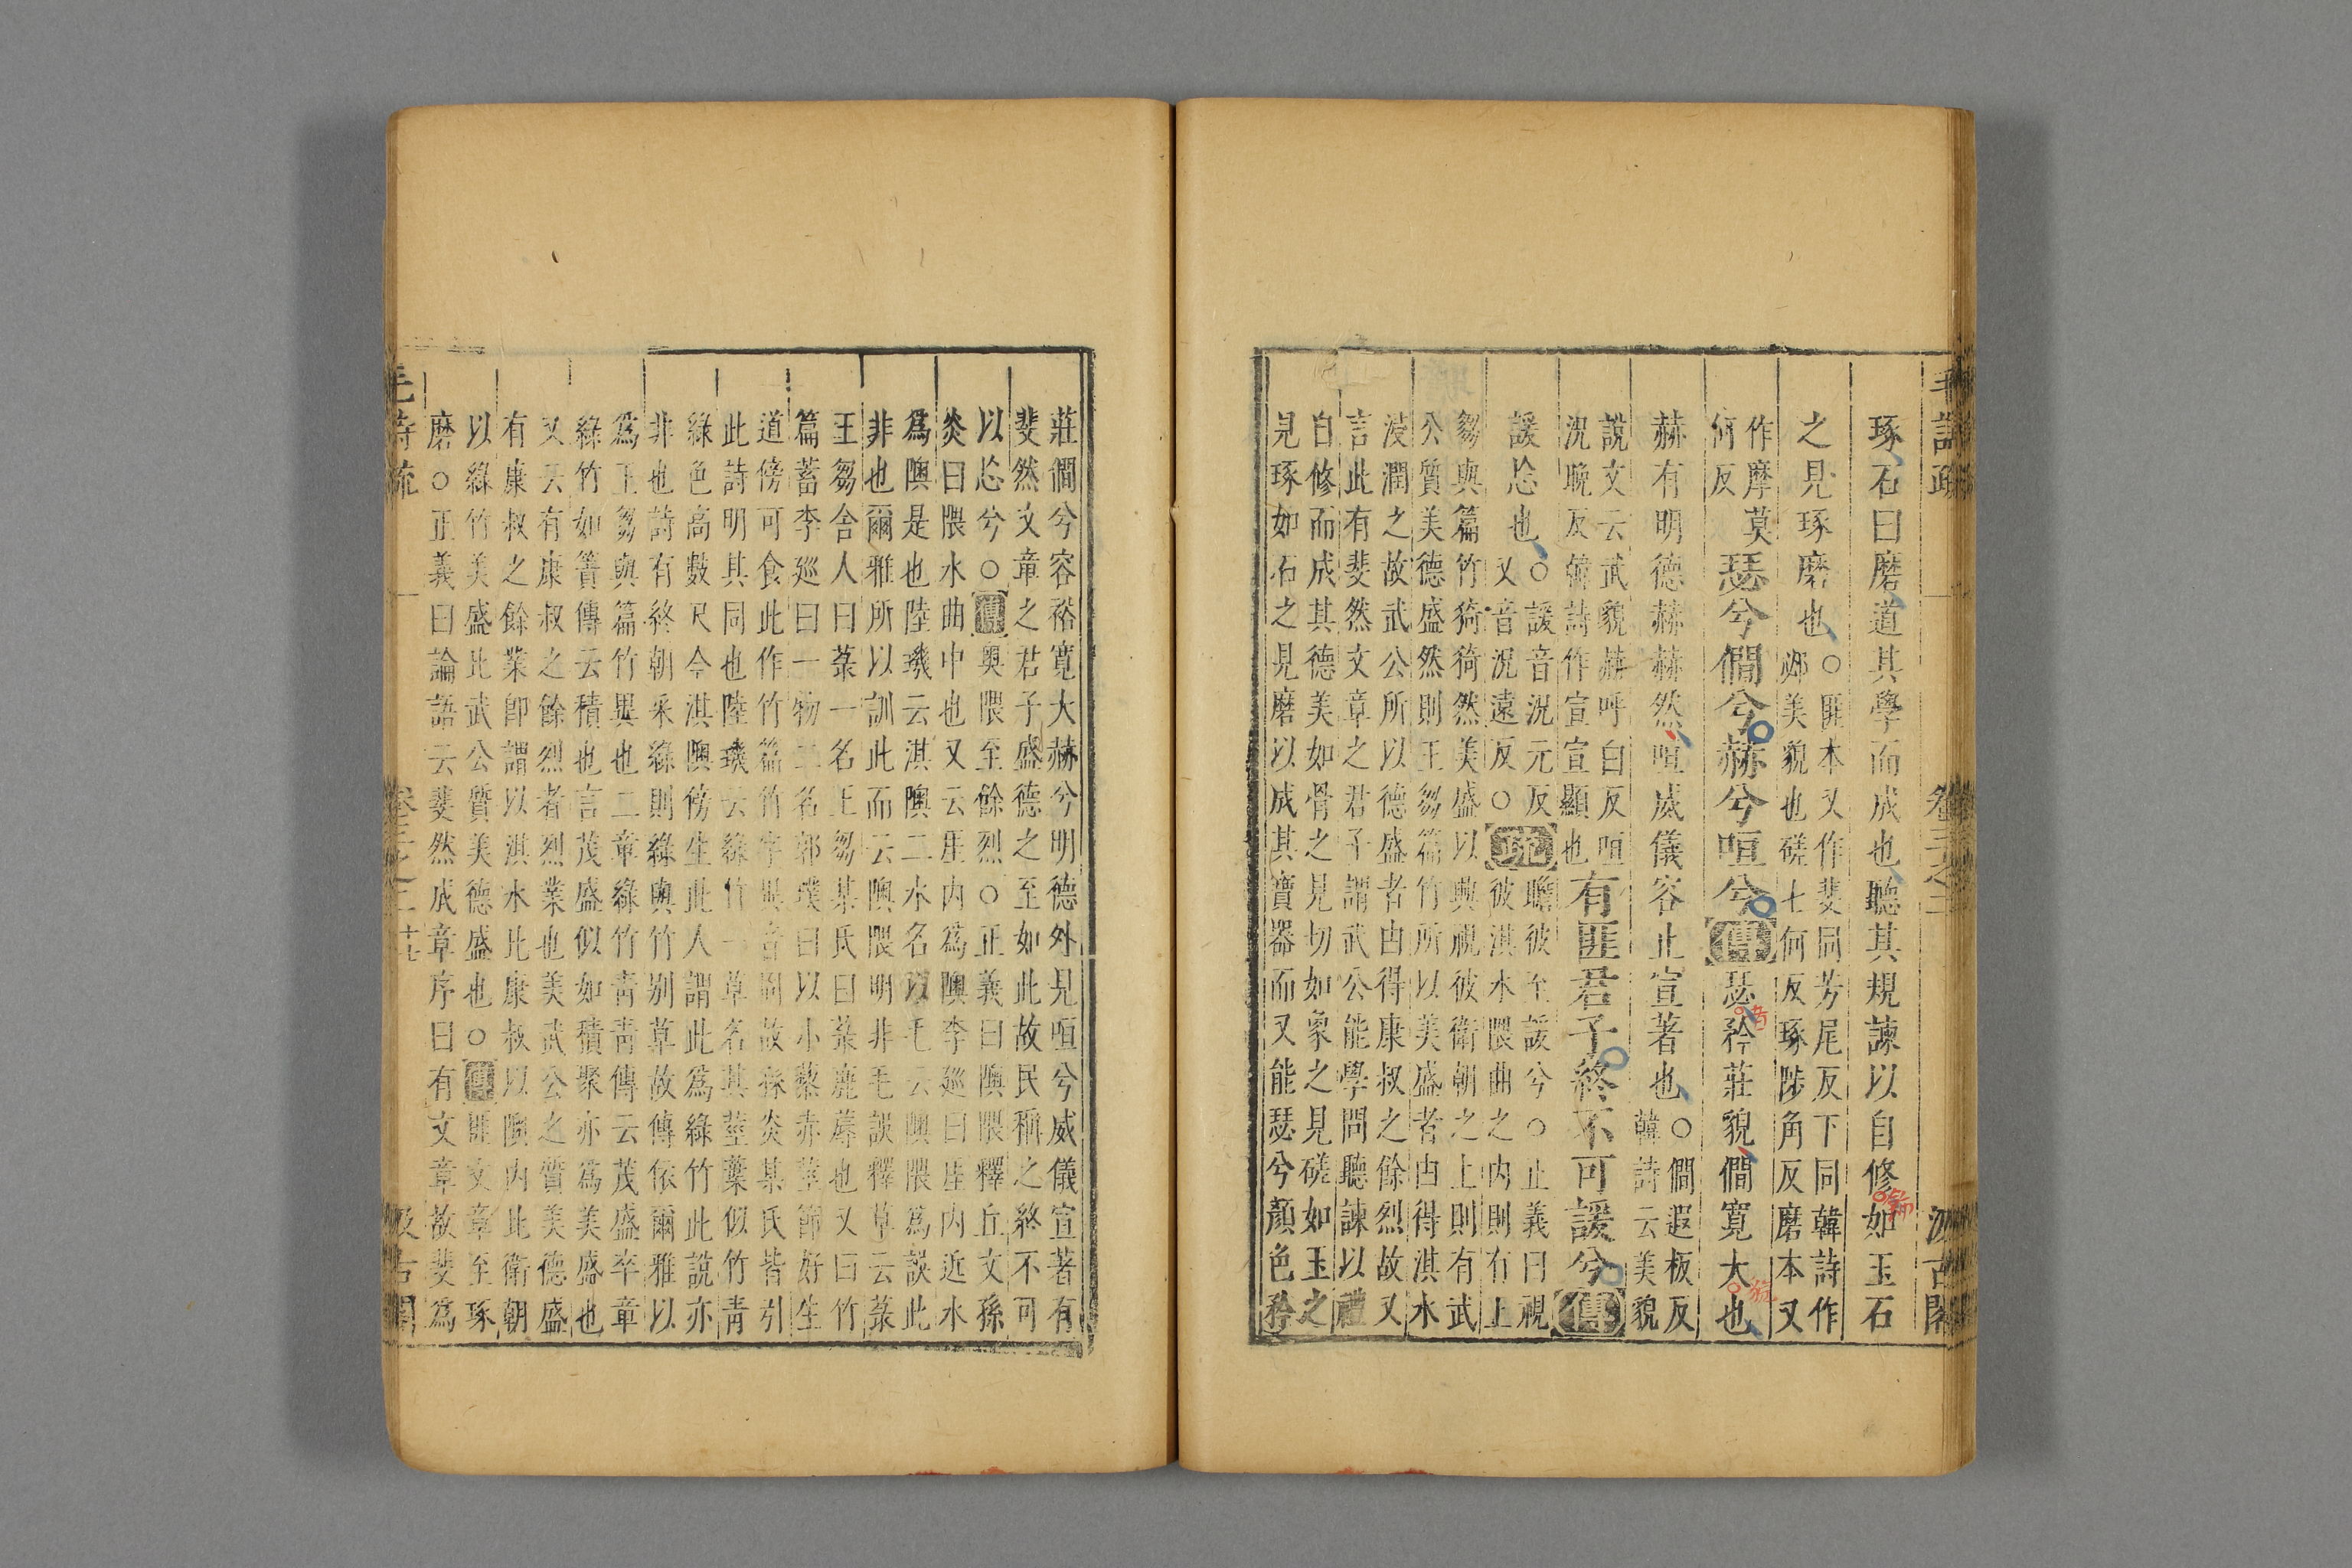 毛詩疏
卷三之二
汲古閣
琢石曰磨道其學而成也聽其規諫以自修如玉石
之見琢磨也○匪本又作斐同芳尾反下同韓詩作
邲美貌也磋七何反琢陟角反磨本又
作摩莫
何反
瑟兮僩兮赫兮咺兮傳瑟矜莊貌僩寬大也
赫有明德赫赫然咺威儀容止宣著也○僩遐板反
韓詩云美貌
說文云武貌赫呼白反咺
況晚反韓詩作宣宣顯也
有匪君子終不可諼兮傳
諼忩也○諼音況元反
又音況遠反○疏
瞻彼至諼兮○正義曰視
彼淇水隈曲之內則有上
芻與篇竹猗猗然美盛以興視彼衛朝之上則有武
公質美德盛然則王芻篇竹所以美盛者由得淇水
浸潤之故武公所以德盛者由得康叔之餘烈故又
言此有斐然文章之君子謂武公能學問聽諫以禮
自修而成其德美如骨之見切如象之見磋如玉之
見琢如石之見磨以成其寶器而又能瑟兮顏色矜
莊僩兮容裕寬大赫兮明德外見咺兮威儀宣著有
斐然文章之君子盛德之至如此故民稱之終不可
以忩兮○傳奧隈至餘烈○正義曰隩隈釋丘文孫
炎曰隈水曲中也又云厓內爲隩李巡曰厓內近水
爲隩是也陸璣云淇隩二水名以毛云隩隈爲誤此
非也爾雅所以訓此而云隩隈明非毛誤釋草云菉
王芻舍人曰菉一名王芻某氏曰菉鹿蓐也又曰竹
篇蓄李巡曰一物二名郭璞曰以小藜赤莖節好生
道傍可食此作竹篇竹字異音同故孫炎某氏皆引
此詩明其同也陸璣云綠竹一草名其莖葉似竹青
綠色高數尺今淇隩傍生此人謂此爲綠竹此說亦
非也詩有終朝采綠則綠與竹别草故傳依爾雅以
爲王芻與篇竹異也二章綠竹青青傳云茂盛卒章
綠竹如簀傳云積也言茂盛似如積聚亦爲美盛也
又云有康叔之餘烈者烈業也美武公之質美德盛
有康叔之餘業即謂以淇水比康叔以隩內比衛朝
以綠竹美盛比武公質美德盛也○傳匪文章至琢
磨○正義曰論語云斐然成章序曰有文章故斐爲
毛詩疏
卷三之二
十七
汲古閣